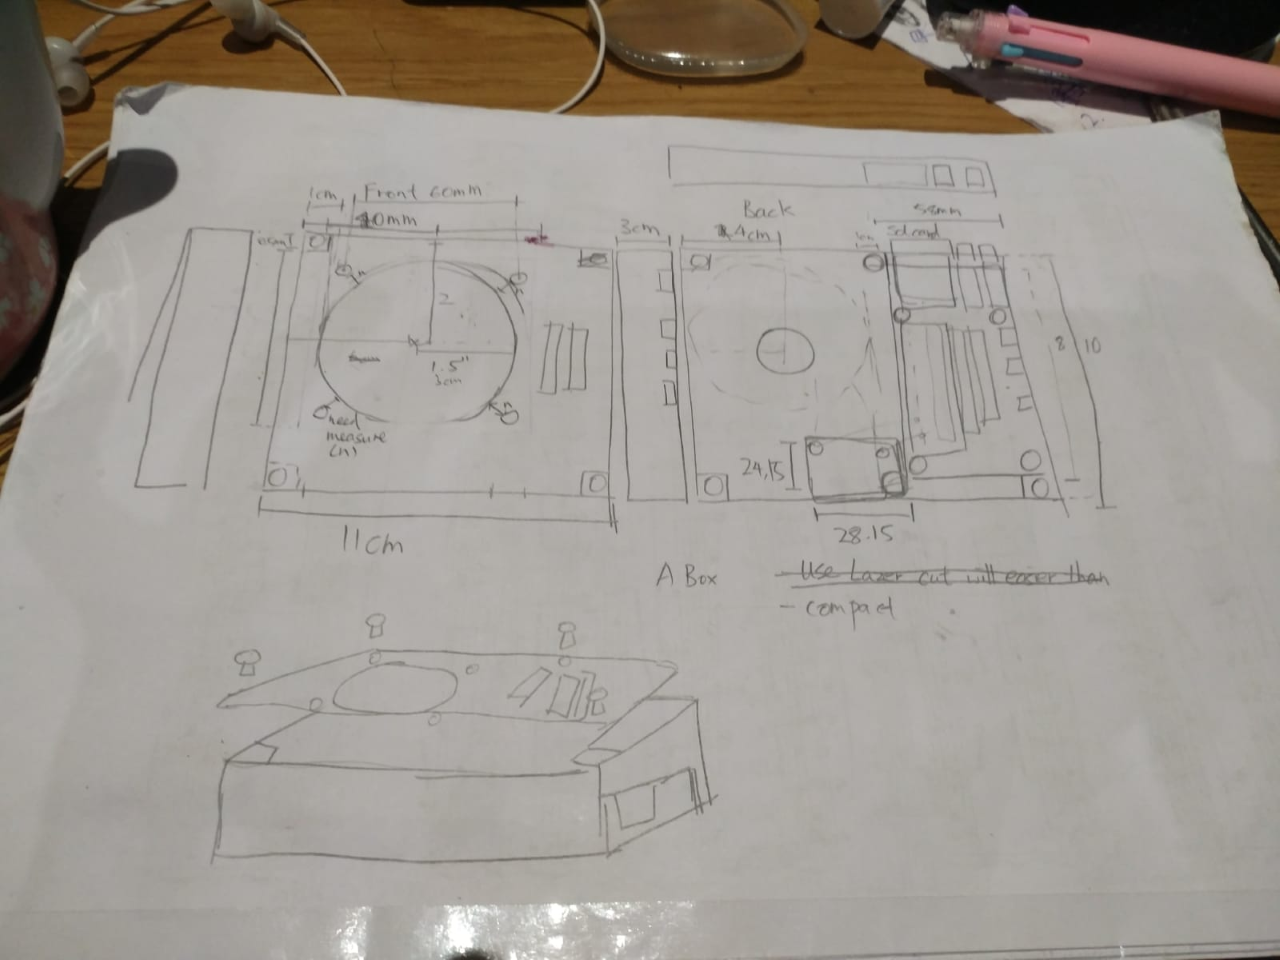 1cm
Front 60mm
40mm
2
1.5"
3cm
need
measure
(n)
n
n
n
11cm
3cm
Back
4cm
58mm
Sd card
8
10
24,15
28.15
A Box
- Use Lazer cut will easer than
- compact